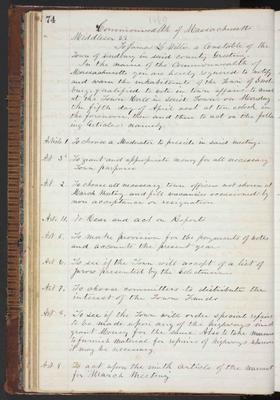 74
Commonwealth of Massachusetts
Middlesex SS.
To James L. Willis a Constable of the
Town of Sudbury in said county Greeting
In the name of the Commonwealth of
Massachusetts you are hereby required to notify
and warn the inhabitants of the Town of Sud
bury, qualified to vote in town affairs to meet
at the Town Hall in said Town on Monday
the fifth day of April next at ten o'clock in
the forenoon then and there to act on the follow
ing articles namely;
Article 1. To choose a Moderator to preside in said meeting.
Art 3. To grant and appropriate money for all necessary
Town purposes
Art. 2. To choose all necessary town officers not chosen at
March Meeting and fill vacancies occasioned by
non acceptance or resignation
Art. 4. To Hear and act on Reports
Art. 5. To make provision for the payments of notes
and accounts the present year
Art. 6. To see if the Town will accept of a list of
jurors presented by the Selectmen
Art. 7. To choose committees to distribute the
interest of the Town Funds
Art. 8. To see if the Town will order special repairs
to be made upon any of the highways and
grant Money for the same Also to take measures
to furnish material for repairs of highways where
it may be necessary
Art. 9 To act upon the ninth article of the warrant
for March Meeting